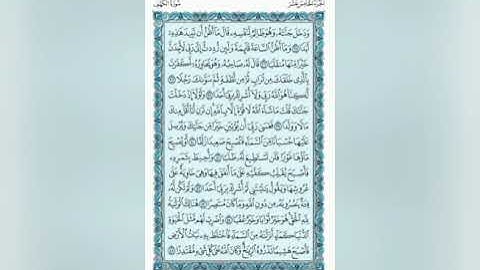 الجزء الخامس عشر
سورة الكهف
وَدَخَلَ جَنَّتَهُۥ وَهُوَ ظَالِمٌ لِّنَفْسِهِۦ قَالَ مَآ أَظُنُّ أَن تَبِيدَ هَٰذِهِۦٓ
أَبَدًا ٣٥ وَمَآ أَظُنُّ ٱلسَّاعَةَ قَآئِمَةً وَلَئِن رُّدِدتُّ إِلَىٰ رَبِّى لَأَجِدَنَّ
خَيْرًا مِّنْهَا مُنقَلَبًا ٣٦ قَالَ لَهُۥ صَاحِبُهُۥ وَهُوَ يُحَاوِرُهُۥٓ أَكَفَرْتَ
بِٱلَّذِى خَلَقَكَ مِن تُرَابٍ ثُمَّ مِن نُّطْفَةٍ ثُمَّ سَوَّىٰكَ رَجُلًا ٣٧
لَّٰكِنَّا۠ هُوَ ٱللَّهُ رَبِّى وَلَآ أُشْرِكُ بِرَبِّىٓ أَحَدًا ٣٨ وَلَوْلَآ إِذْ دَخَلْتَ
جَنَّتَكَ قُلْتَ مَا شَآءَ ٱللَّهُ لَا قُوَّةَ إِلَّا بِٱللَّهِ إِن تَرَنِ أَنَا۠ أَقَلَّ مِنكَ
مَالًا وَوَلَدًا ٣٩ فَعَسَىٰ رَبِّىٓ أَن يُؤْتِيَنِ خَيْرًا مِّن جَنَّتِكَ وَيُرْسِلَ
عَلَيْهَا حُسْبَانًا مِّنَ ٱلسَّمَآءِ فَتُصْبِحَ صَعِيدًا زَلَقًا ٤٠ أَوْ يُصْبِحَ
مَآؤُهَا غَوْرًا فَلَن تَسْتَطِيعَ لَهُۥ طَلَبًا ٤١ وَأُحِيطَ بِثَمَرِهِۦ
فَأَصْبَحَ يُقَلِّبُ كَفَّيْهِ عَلَىٰ مَآ أَنفَقَ فِيهَا وَهِىَ خَاوِيَةٌ عَلَىٰ
عُرُوشِهَا وَيَقُولُ يَٰلَيْتَنِى لَمْ أُشْرِكْ بِرَبِّىٓ أَحَدًا ٤٢ وَلَمْ تَكُن لَّهُۥ
فِئَةٌ يَنصُرُونَهُۥ مِن دُونِ ٱللَّهِ وَمَا كَانَ مُنتَصِرًا ٤٣ هُنَالِكَ ٱلْوَلَٰيَةُ
لِلَّهِ ٱلْحَقِّ هُوَ خَيْرٌ ثَوَابًا وَخَيْرٌ عُقْبًا ٤٤ وَٱضْرِبْ لَهُم مَّثَلَ ٱلْحَيَوٰةِ
ٱلدُّنْيَا كَمَآءٍ أَنزَلْنَٰهُ مِنَ ٱلسَّمَآءِ فَٱخْتَلَطَ بِهِۦ نَبَاتُ ٱلْأَرْضِ
فَأَصْبَحَ هَشِيمًا تَذْرُوهُ ٱلرِّيَٰحُ وَكَانَ ٱللَّهُ عَلَىٰ كُلِّ شَىْءٍ مُّقْتَدِرًا ٤٥